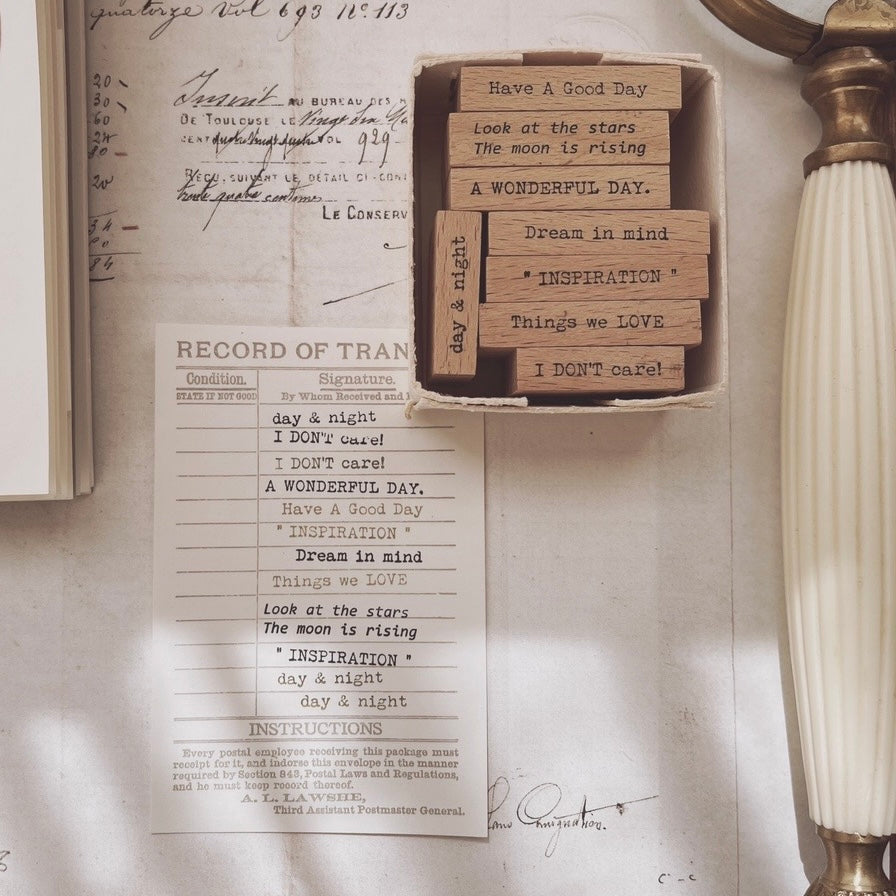 quatorze Vol 693 Nº 113
20
30
60
24
80
20
34
84
Inscrit AU BUREAU DES H
DE TOULOUSE LE Vingt
CENT VOL 929
REÇU, SUIVANT LE DÉTAIL CI-CONT
trente quatre centimes
LE CONSERV
Have A Good Day
Look at the stars
The moon is rising
A WONDERFUL DAY.
Dream in mind
" INSPIRATION "
Things we LOVE
I DON'T care!
day & night
RECORD OF TRAN
Condition.
STATE IF NOT GOOD
Signature.
By Whom Received and
day & night
I DON'T care!
I DON'T care!
A WONDERFUL DAY.
Have A Good Day
" INSPIRATION "
Dream in mind
Things we LOVE
Look at the stars
The moon is rising
" INSPIRATION "
day & night
day & night
INSTRUCTIONS
Every postal employee receiving this package must
receipt for it, and indorse this envelope in the manner
required by Section 943, Postal Laws and Regulations,
and he must keep record thereof.
A. L. LAWSHE,
Third Assistant Postmaster General.